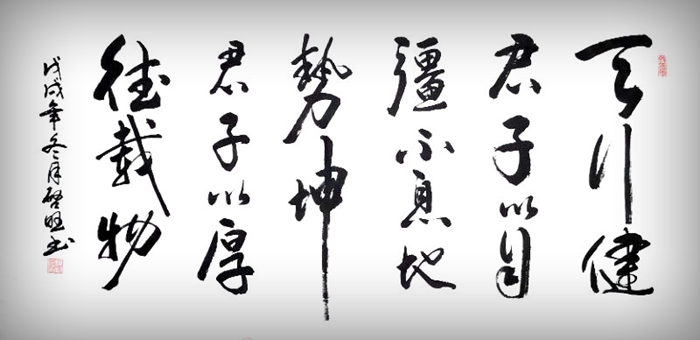 天行健
君子以自
彊不息地
勢坤
君子以厚
德載物
戊戌年冬月啓旺书